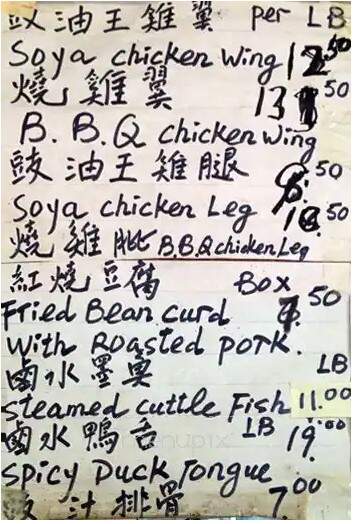 豉油王雞翼 per LB
Soya chicken wing 12.50
燒雞翼 13.50
B.B.Q chicken wing
豉油王雞腿 .50
Soya chicken Leg
燒雞 B.B.Q chicken Leg
紅燒豆腐 Box
Fried Bean curd .50
with Roasted pork.
鹵水墨 LB
Steamed cuttle Fish 11.00
鹵水鴨舌 LB 19.00
Spicy Duck Tongue
汁排骨 7.00